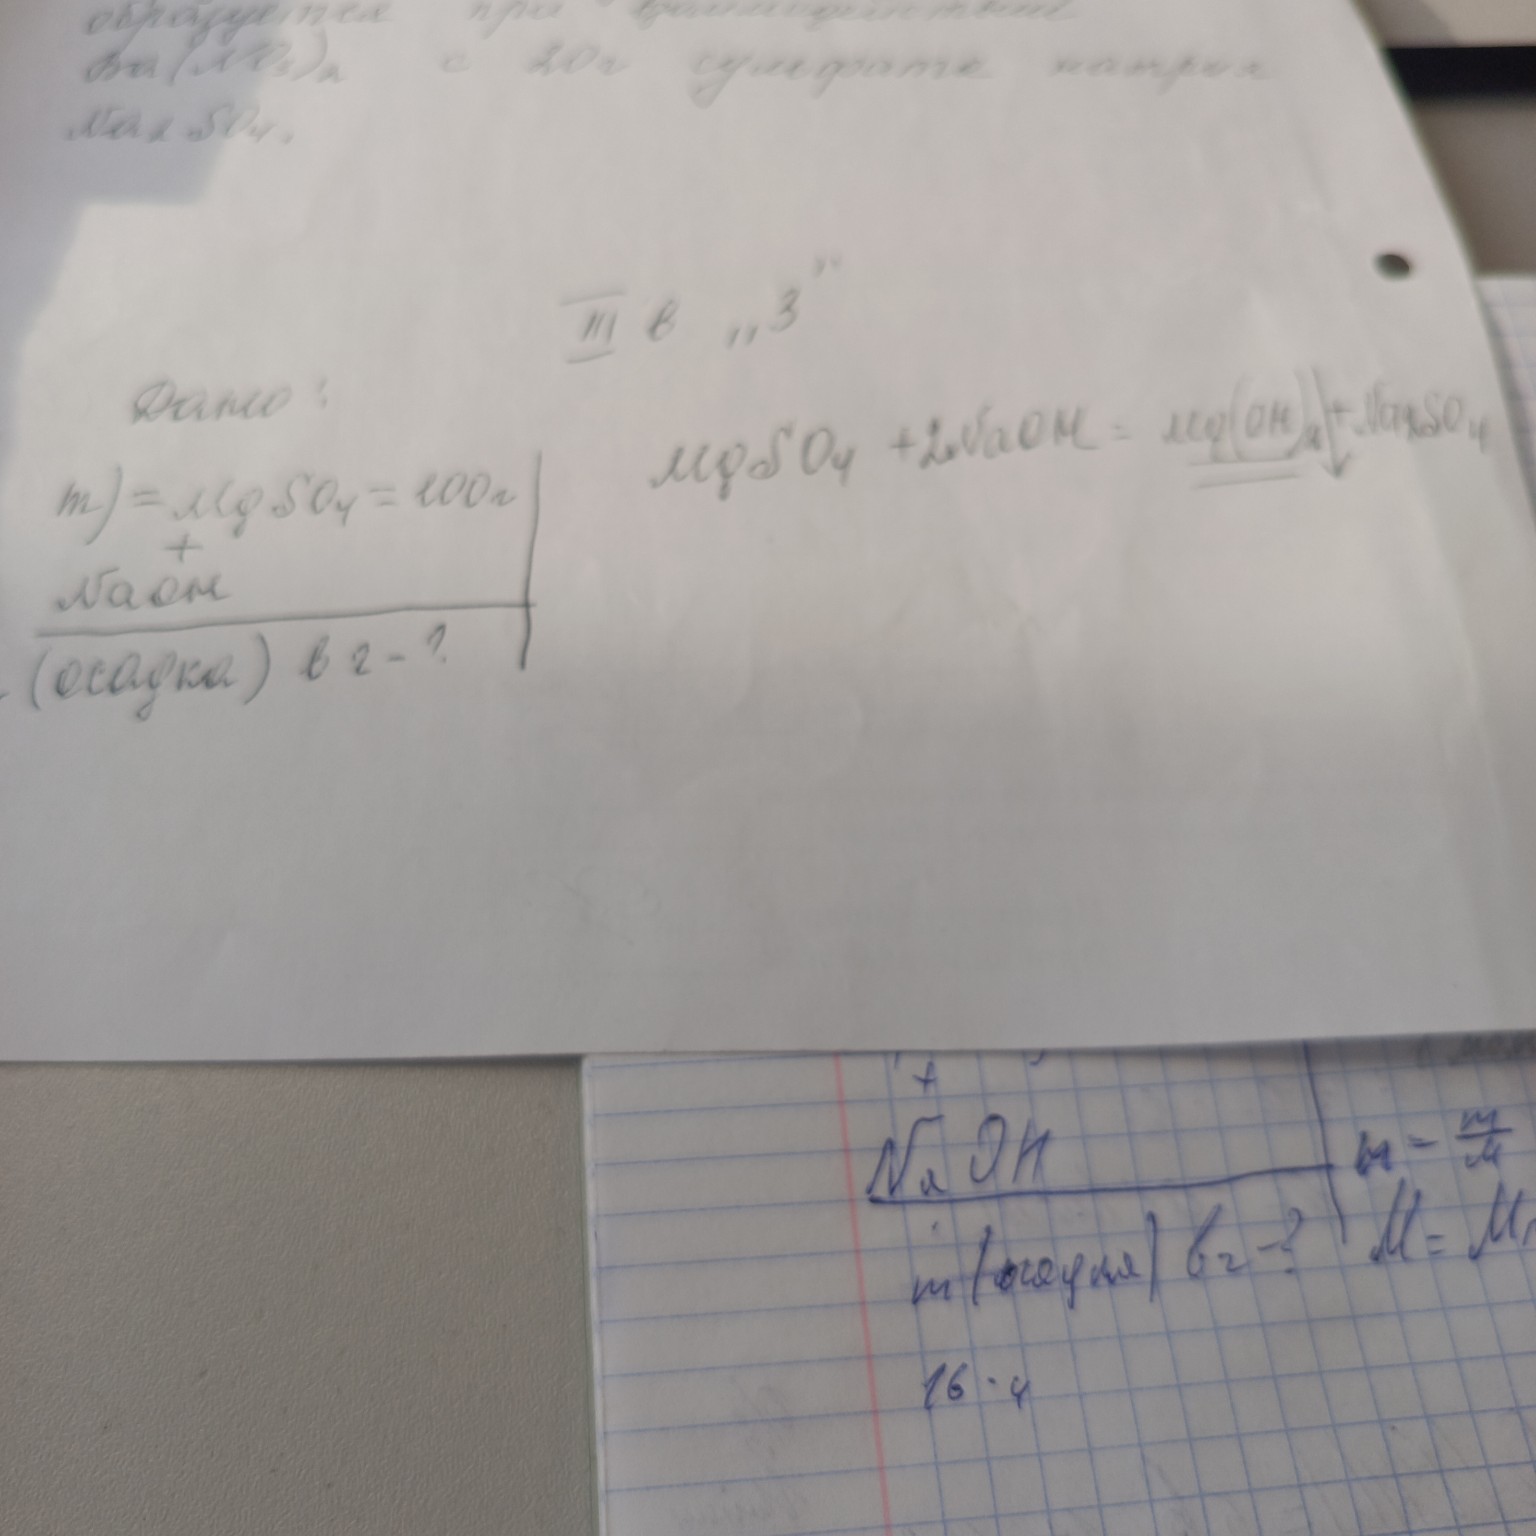 образуется при взаимодействии
Ba(NO₃)₂ с 20г сульфата натрия
Na₂SO₄.
III в „3"
Дано:
m) = MgSO₄ = 100г
+
NaOH
(осадка) в г - ?
MgSO₄ + 2NaOH = Mg(OH)₂↓ + Na₂SO₄
+
NaOH
m (осадка) в г - ?
n = m/M
M = M
16 · 4